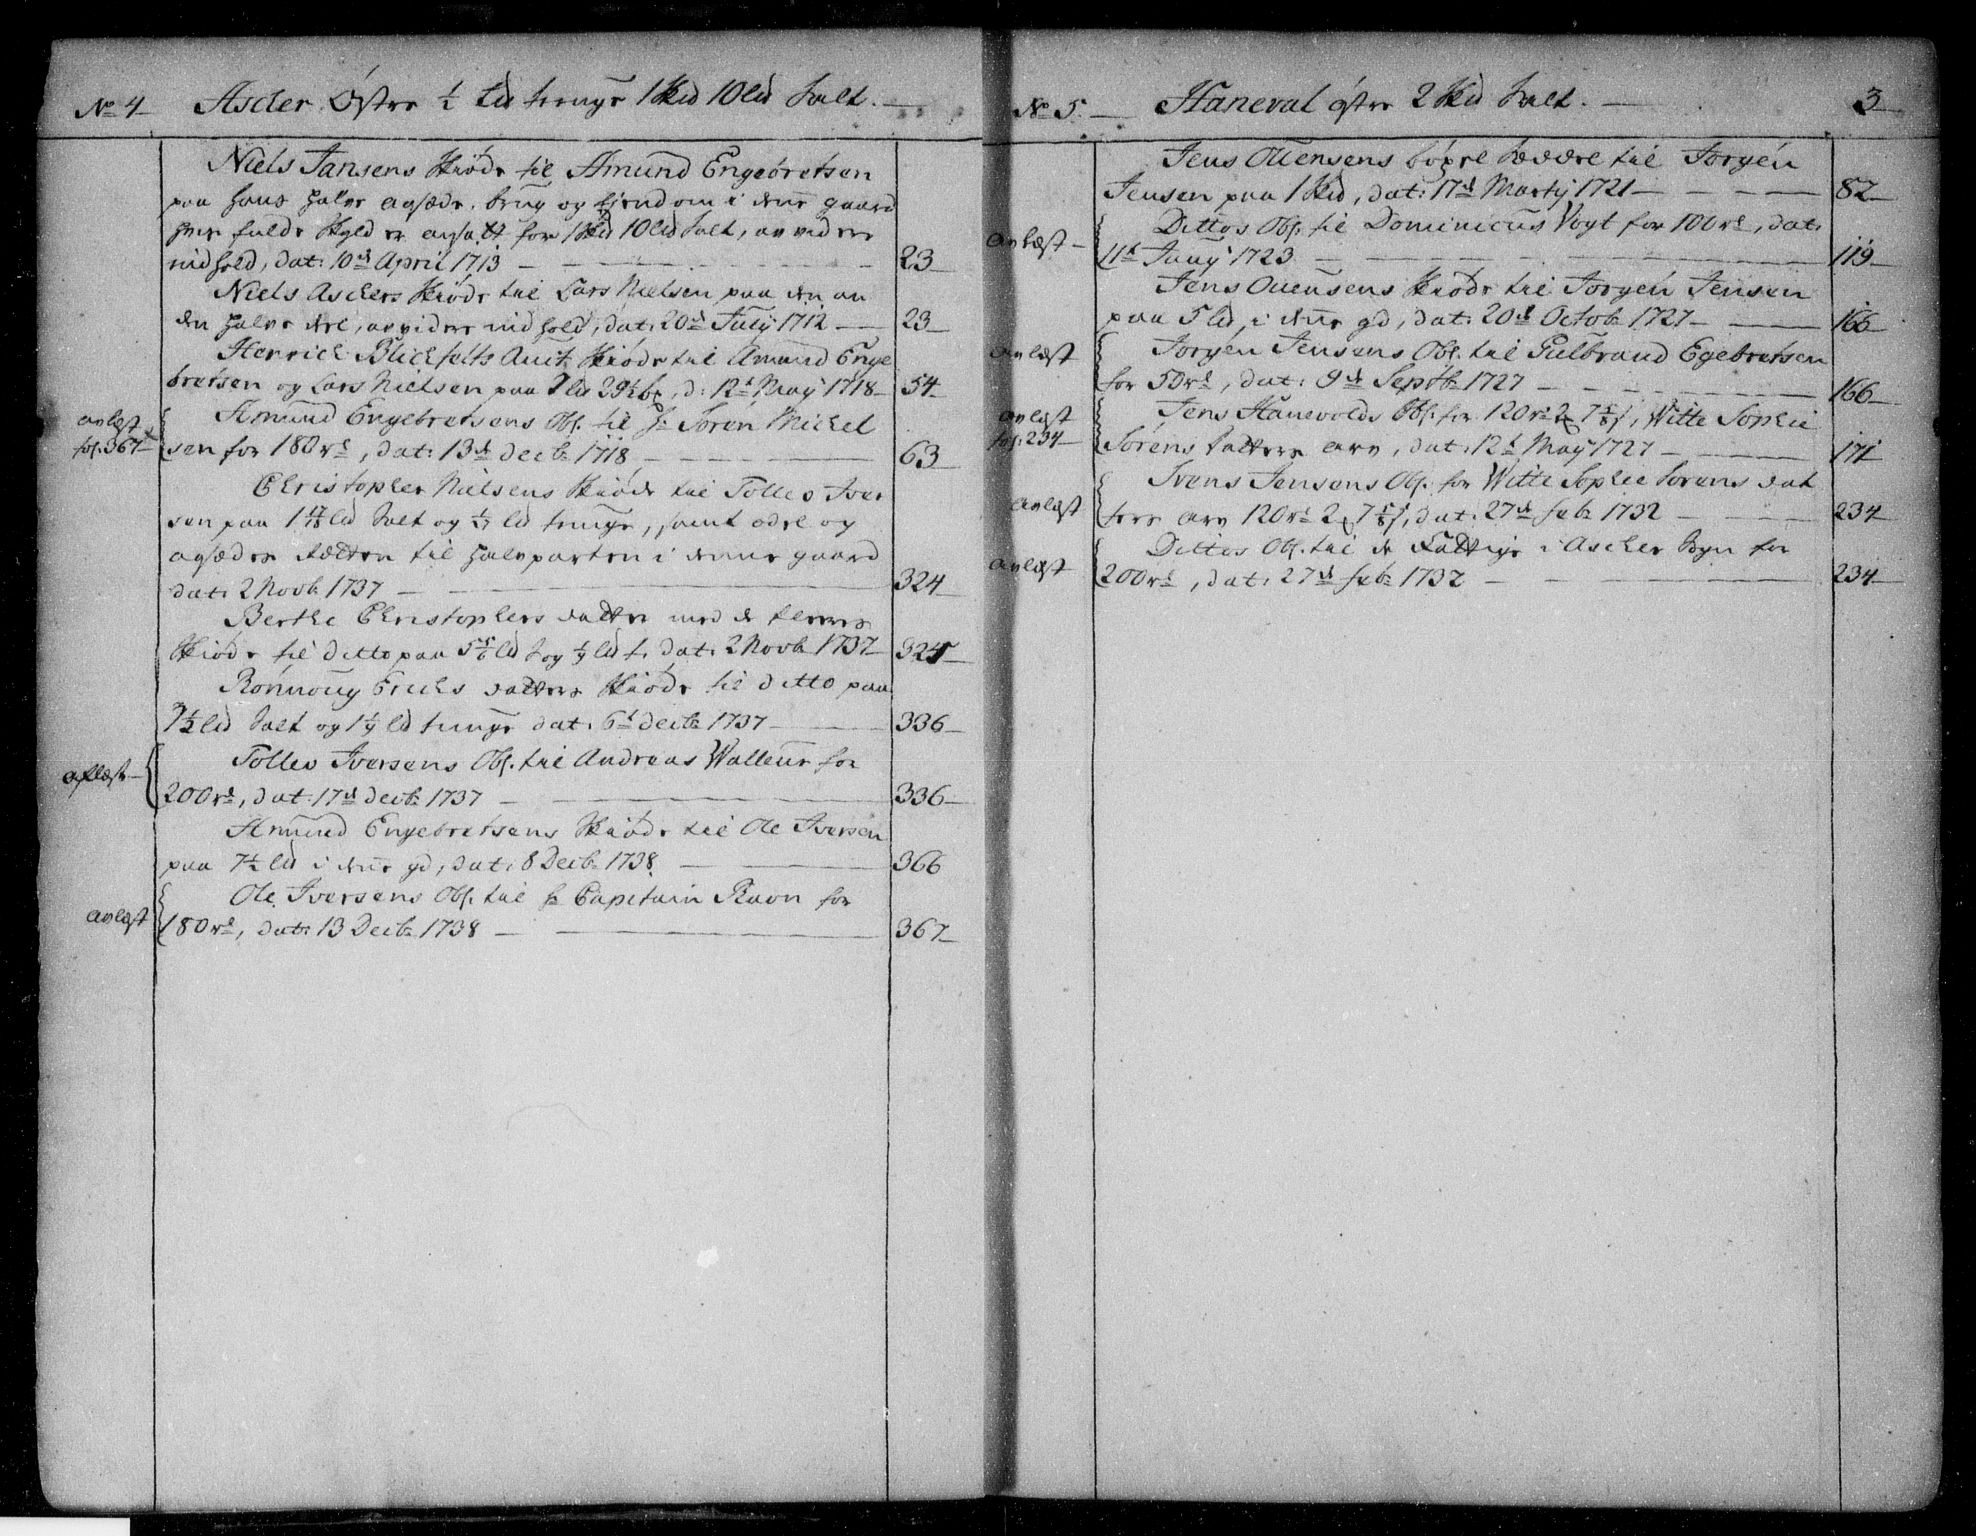 No 4 Asker Østre ½ td tunge 1 skd 10 ld salt.
Niels Jansens skiøde til Amund Engebretsen
paa hans halve aasæde, brug og Eiendom i denne gaard
hvis fulde skyld er ansatt for 1 skd 10 ld salt, av videre
indhold, dat: 10de April 1713 23
Niels Askers skiøde til Lars Nielsen paa den an
den halve deel, av videre indhold, dat: 20de July 1712 23
Henrich Blichfelts Auct. skiøde til Amund Enge
bretsen og Lars Nielsen paa ld 29½ , d: 12t May 1718 54
avlæst fol. 367 Amund Engebretsens Obl. til Hr Søren Michel
sen for 180 rd, dat: 13de decbr 1718 63
Christopher Nielsens skiøde til Tollev Iver
sen paa 1 ld salt og ld tunge, samt odel og
aasædes rætten til halvparten i denne gaard
dat: 2 Novbr 1737 324
Berthe Christophers datter med de fleres
skiøde til ditto paa 5 ld s og ld t. dat: 2 Novbr 1737 325
Rønnoug Erichs datters skiøde til ditto paa
7½ ld salt og 1 ld tunge dat: 6t decbr 1737 336
aflæst Tollev Iversens Obl. til Andreas Walleur for
200 rd, dat: 17de decbr 1737 336
Amund Engebretsens skiøde til Ole Iversen
paa 7½ ld i denne gd, dat: 8 Decbr 1738 366
avlæst Ole Iversens Obl. til Hr Capitain Ravn for
180 rd, dat: 13 Decbr 1738 367
No 5. Haneval østre 2 skd salt. 3
Jens Ouensens bøxel seddel til Jørgen
Jensen paa 1 skd, dat: 17de Martij 1721 82
avlæst Dittos Obl. til Dominicus Vogt for 100 rd, dat:
11t Juny 1723 119
Jens Ouensens skiøde til Jørgen Jensen
paa 5 ld i denne gd, dat: 20de Octob: 1727 166
avlæst Jørgen Jensens Obl. til Gulbrand Egebretsen
for 50 rd, dat: 9de Septbr 1727 166
avlæst fol: 234 Jens Hanevolds Obl. for 120 rd 2 7 s, Witte Sophie
Sørens datters arv, dat: 12t May 1727 171
avlæst Ivens Jensens Obl. for Witte Sophie Sørens dat
ters arv 120 rd 2 7 s, dat: 27de febr 1732 234
avlæst Dittos Obl. til de Fattige i Asker Bygn for
200 rd, dat: 27de febr 1732 234